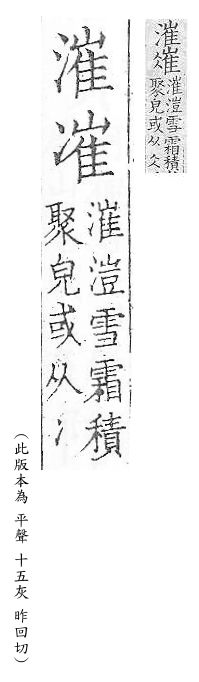 漼
漼溰雪霜積
聚皃或从仌
漼凗
漼溰雪霜積
聚皃或从冫
（此版本為 平聲 十五灰 昨回切）